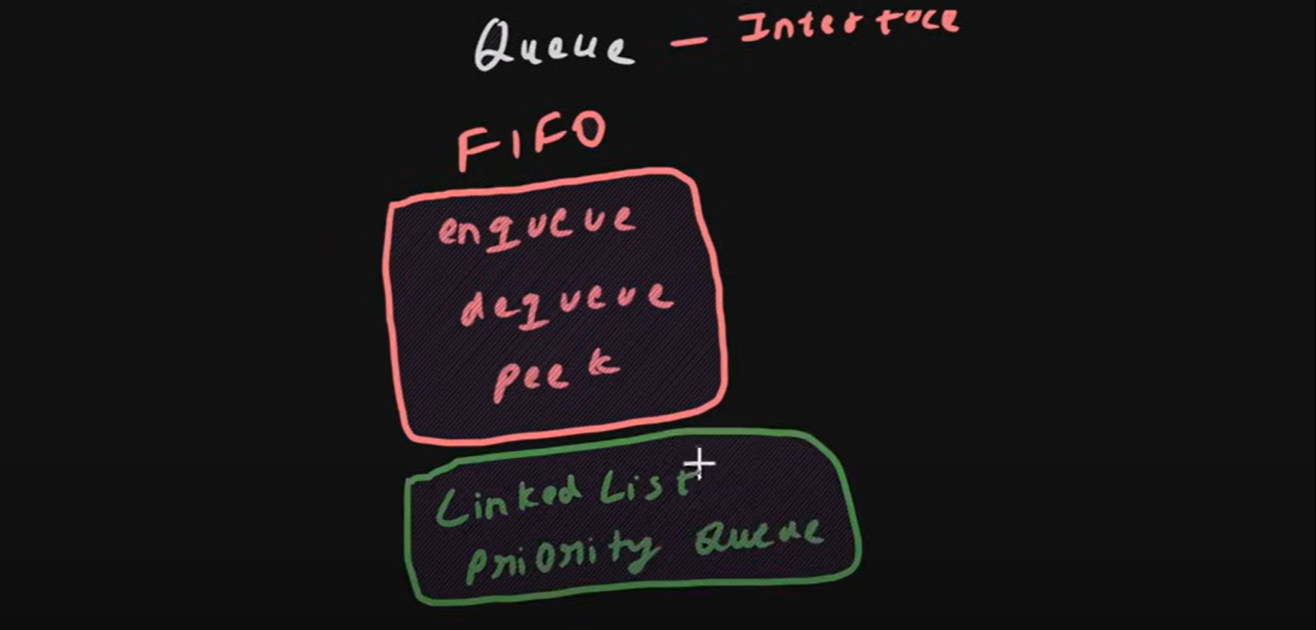 Queue - Interface
FIFO
enqueue
dequeue
peek
Linked List
Priority Queue